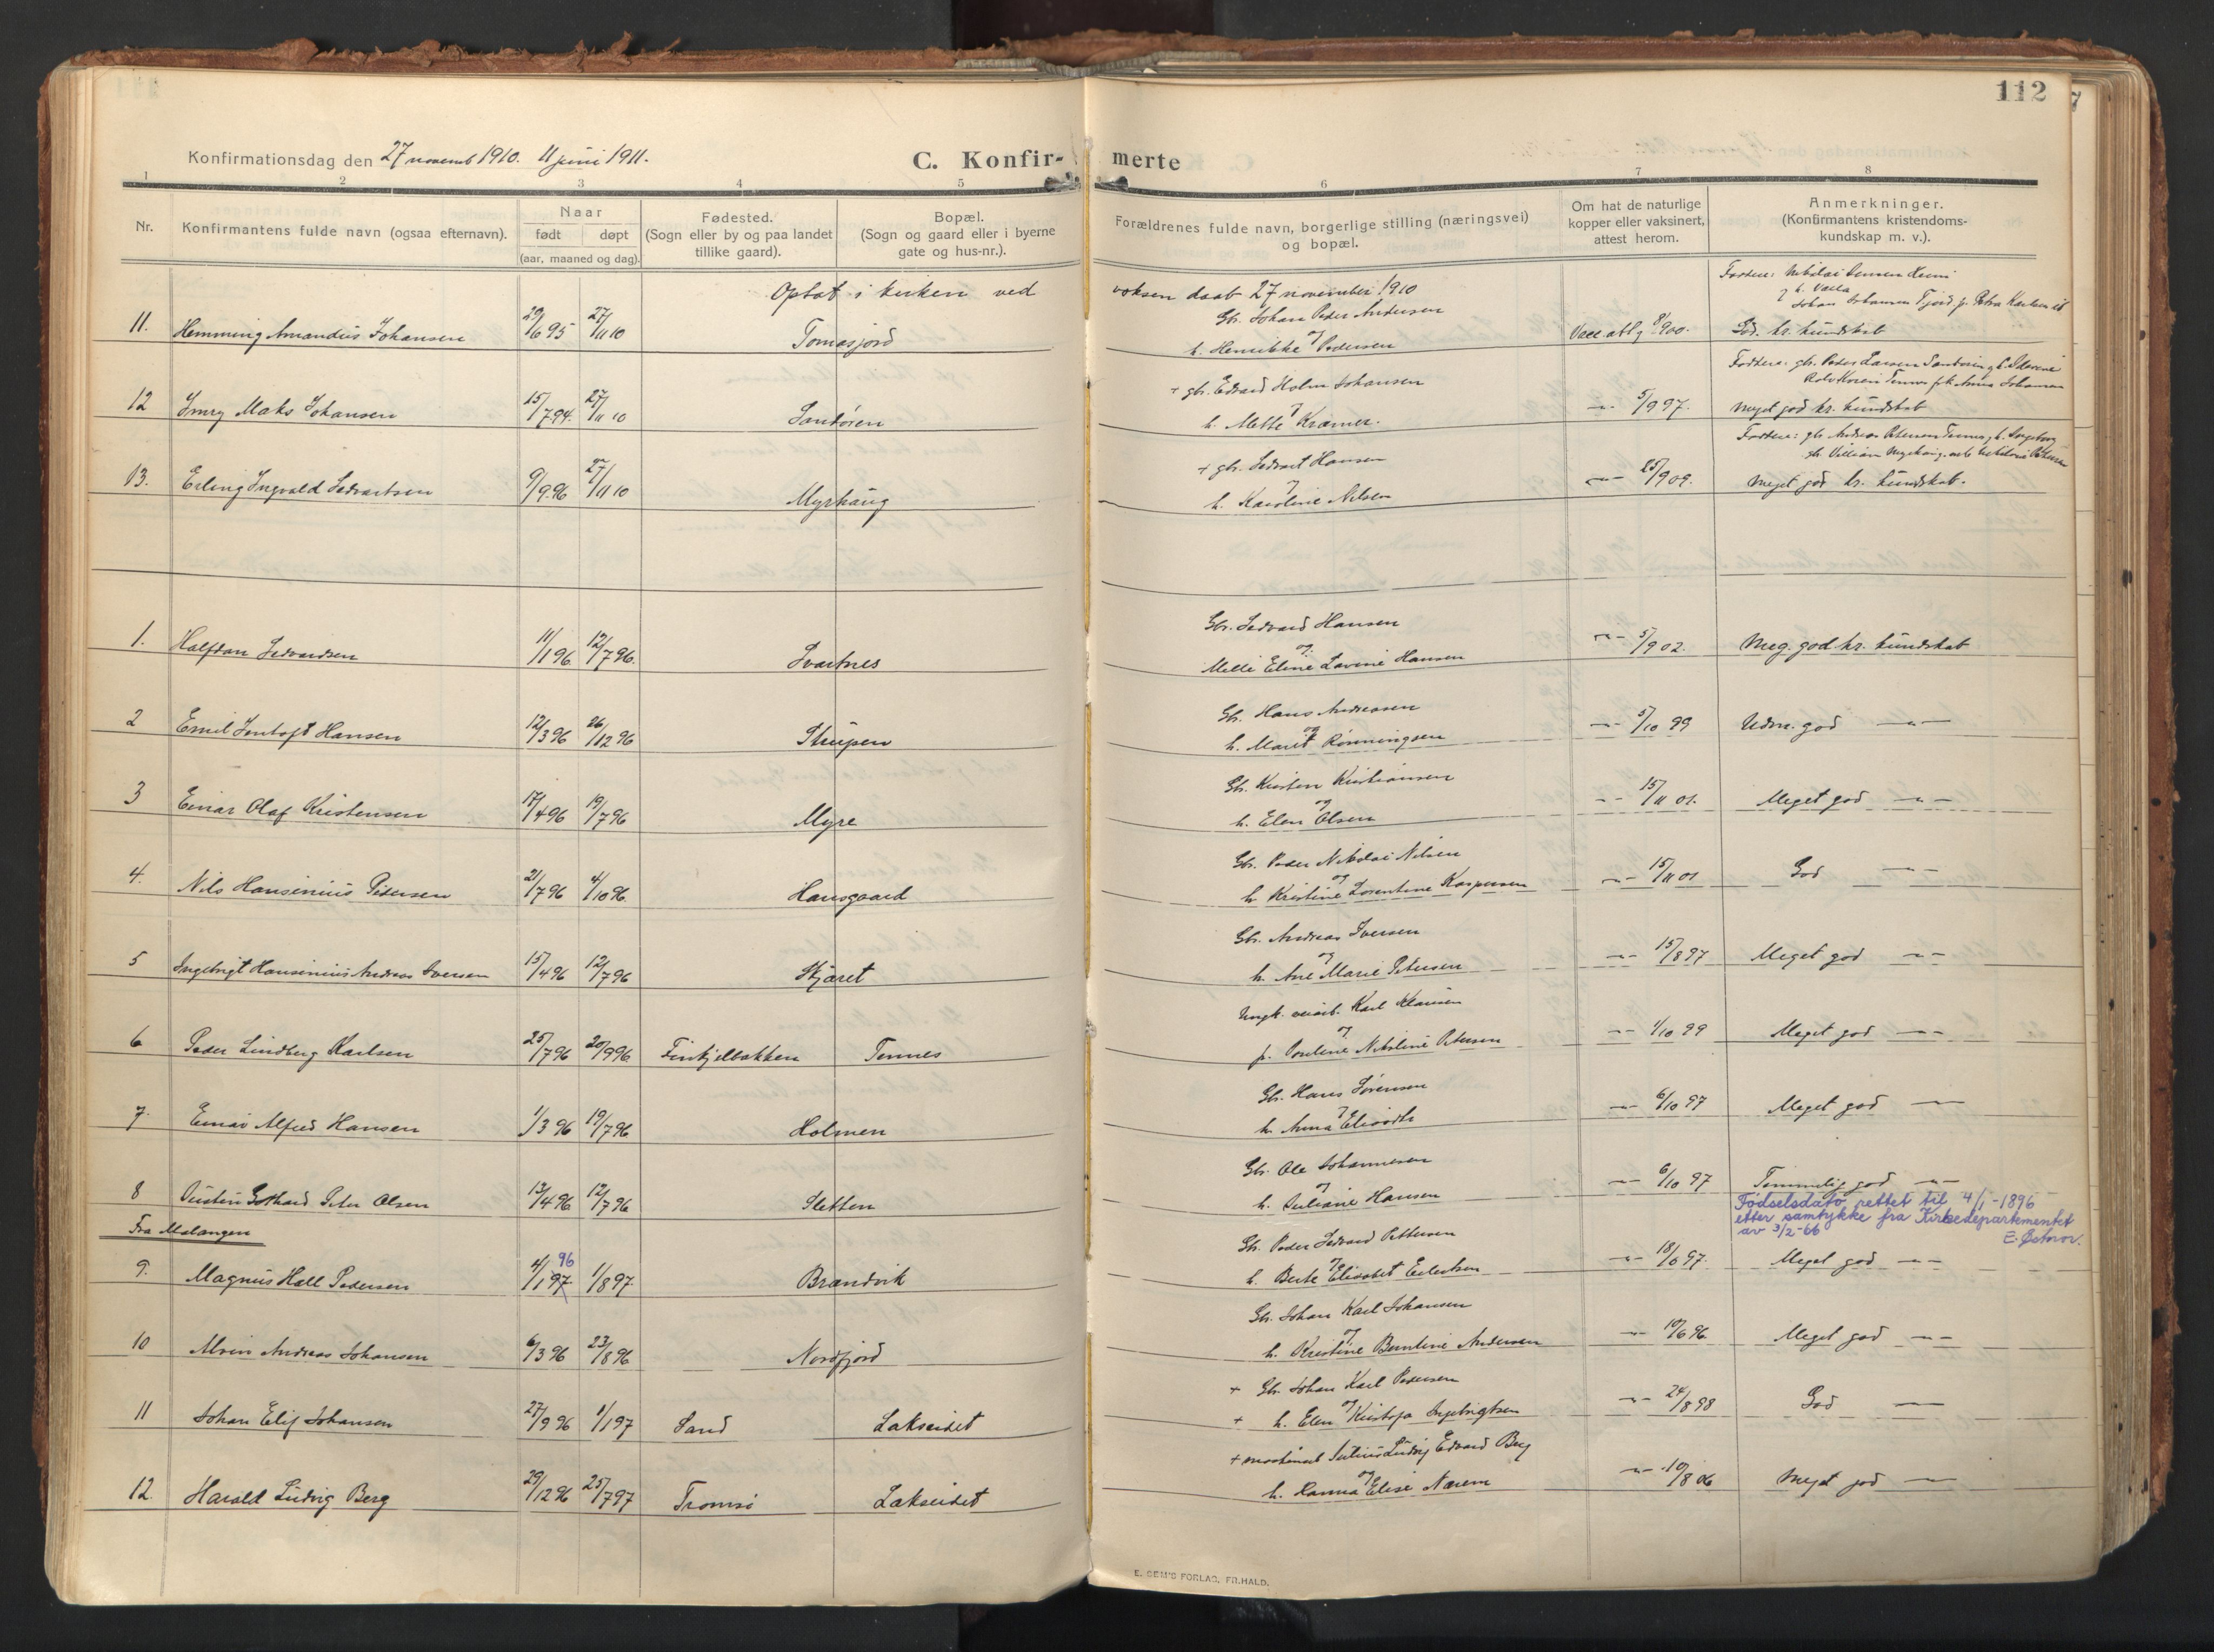 112
Konfirmationsdag den 27 novemb 1910. 11 juni 1911.
C. Konfir- merte
1 2 3 4 5 6 7 8
Nr.
Konfirmantens fulde navn (ogsaa efternavn).
Naar
født døpt
(aar, maaned og dag).
Fødested.
(Sogn eller by og paa landet
tillike gaard).
Bopæl.
(Sogn og gaard eller i byerne
gate og hus-nr.).
Forældrenes fulde navn, borgerlige stilling (næringsvei)
og bopæl.
Om hat de naturlige
kopper eller vaksinert,
attest herom.
Anmerkninger.
(Konfirmantens kristendoms-
kundskap m. v.).
Optat i kirken ved voksen daab 27 november 1910
11. Hemming Amandus Johansen 29/6 95 27/11 10 Tomasjord
Gbr. Johan Peder Andersen
og
h. Henrikke Pedersen
God kr. kundskab
12 Maks Johansen 15/7 94. 27/11 10 Sandøren
+ gbr. Edvard Holm Johansen
og
h. Mette Kramer. -"- 5/9 97. Meget god kr. kundskab
13. Erling Ingvald Sedvartsen 9/9. 96 27/11 10 Myrhaug
+ gbr. Sedvart Hansen
og
h. Karoline Nilsen -"- 25/9 09. Meget god kr. kundskab.
1. Halfdan Sedvardsen 11/1 96 12/7 96. Svartnes
Gbr. Sedvard Hansen
og
Milli Eline Lavine Hansen -"- 5/9 02. Meg. god kr. kundskab
2 Emil Hansen 12/3 96 26/12 96 Stupen
Gbr. Hans Andreasen
og
h. Marit Rønningsen -"- 5/10 99 Udm. god -"-
3 Einar Olaf Kristensen 17/4 96 19/7 96 Myre
Gbr. Kristen Kristiansen
og
h. Elen Olsen -"- 15/11 01. Meget god -"-
4. Nils Hansenius Pedersen 21/7 96 4/10 96. Hansgaard
Gbr. Peder Nikolai Nilsen
og
h. Kristine Lorentine Kaspersen -"- 15/11 01 God -"-
5 Ingebrigt Hansenius Andreas Iversen 15/4 96 12/7 96 Skjæret
Gbr. Andreas Iversen
og
h. Ane Marie Petersen -"- 15/8 97 Meget god -"-
6 Peder Lindberg Karlsen 25/7 96 20/9 96 Finkjelbakken Tennes
Ungk. Karl Klausen
og
p. Nikoline Petersen -"- 1/10 99 Meget god -"-
7. Einar Alfred Hansen 1/3 96 19/7 96 Holmen
Gbr. Hans Sørensen
og
h. Anna -"- 6/10 97 Meget god -"-
8 Gothard Peter Olsen 13/4 96 12/7 96 Sletten
Gbr. Ole Johannesen
og
h. Juliane Hansen -"- 6/10 97 Temmelig god -"-
Fødselsdato rettet til 4/1-1896
etter samtykke fra Kirkedepartementet
av 3/2-66
Fra Malangen
9. Magnus Hall Pedersen 4/1 97 96 1/8 97 Brandvik
Gbr. Peder Sedvard Pettersen
og
h. Berte Elisabet Eilertsen -"- 18/6 97. Meget god -"-
10 Alvin Andreas Johansen 6/3 96 23/8 96 Nordfjord
Gbr. Johan Karl Johansen
og
h. Kristine Berntine Andersen -"- 10/6 96 Meget god -"-
11 Johan Elif Johansen 27/9 96 1/1 97 Sand Lakseidet
+ Gbr. Johan Karl Pedersen
og
+ h. Elen Kristofa Ingebrigtsen -"- 24/8 98 God -"-
12. Harald Ludvig Berg 29/12 96 25/7 97 Tromsø Lakseidet
+ maskinist Julius Ludvig Edvard Berg
og
h. Hanna Elise Nærem -"- 10/8 06 Meget god -"-
E. SEM'S FORLAG, FR.HALD.